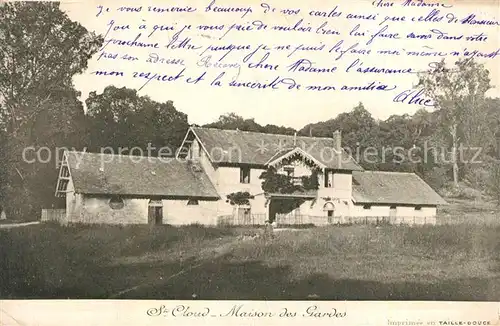 Chère Madame
Je vous remercie beaucoup de vos cartes ainsi que celles de Monsieur
à qui je vous prie de vouloir bien lui faire savoir dans votre
prochaine lettre puisque je ne puis le faire moi même n'ayant
pas son adresse. Recevez chère Madame l'assurance de
mon respect et la sincérité de mon amitié
Alice
© www.delcampe.net
St Cloud - Maison des Gardes
Imprimée en TAILLE-DOUCE